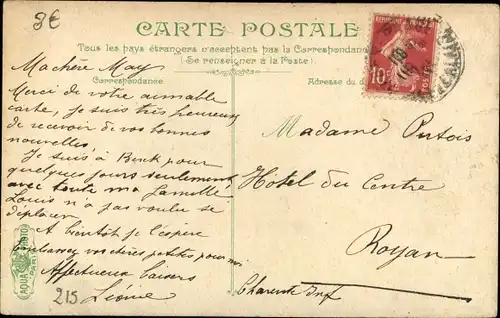 3€
CARTE POSTALE
Tous les pays étrangers n'acceptent pas la Correspondance
(Se renseigner à la Poste)
Correspondance
Adresse du d
10
Ma chère May
Merci de votre aimable
carte, je suis très heureuse
de recevoir de vos bonnes
nouvelles,
je suis à Berck pour
quelques jours seulement
avec toute ma famille
Louis n'a pas voulu se
déplacer
A bientôt je l'espère
vos chères petites pour moi
Affectueux baisers
Léonie
215
Madame Putois
Hôtel du Centre
Royan
Charente Inf
AQUA PHOTO
PARIS